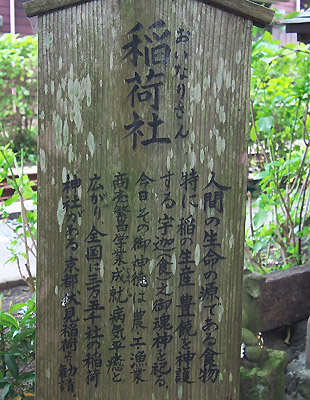 おいなりさん
稲荷社
人間の生命の源である食物
特に稲の生産、豊饒を神護
する宇迦(食)之御魂神を祀る。
今日その御神徳は農工漁業
商売繁昌学業成就、病気平癒と
広がり全国に三万五千社の稲荷
神社がある。京都伏見稲荷の勧請。